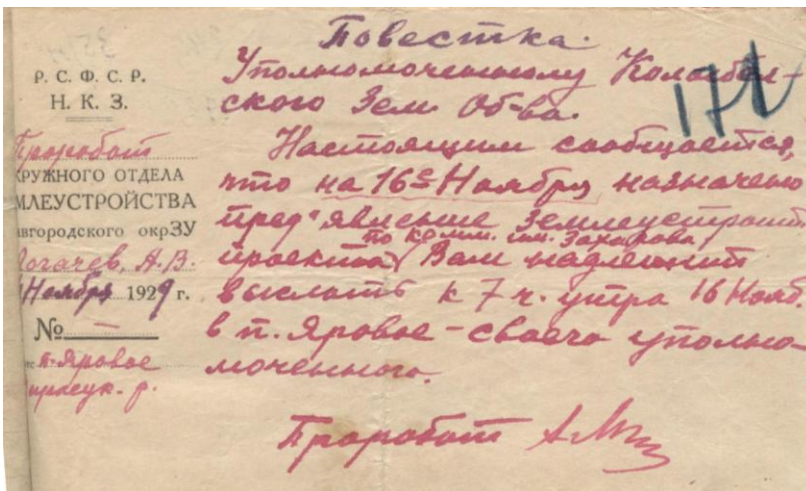 Р. С. Ф. С. Р.
Н. К. З.
Проработ
КРУЖНОГО ОТДЕЛА
МЛЕУСТРОЙСТВА
авгородского окрЗУ
Ногачев, А. В.
Ноября 1929 г.
№ —
п. Яровое
р.
Повестка.
Уполномоченному
ского Зем. Об-ва.
171
Настоящим сообщается,
что на 16е Ноября назначено
пред"явление землеустроит.
по комм. им. Захарова
проекта Вам надлежит
выслать к 7 ч. утра 16 Нояб.
в п. Яровое – своего уполно-
моченного.
Проработ